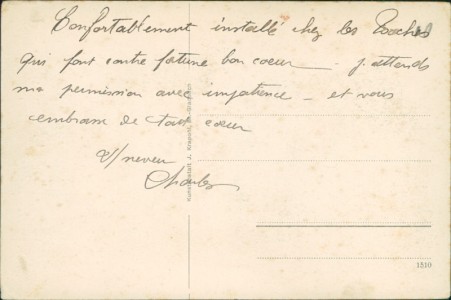 Confortablement installé chez les Boches
qui font contre fortune bon coeur - j'attends
ma permission avec impatience - et vous
embrasse de tout coeur
V/ neveu
Charles
1510